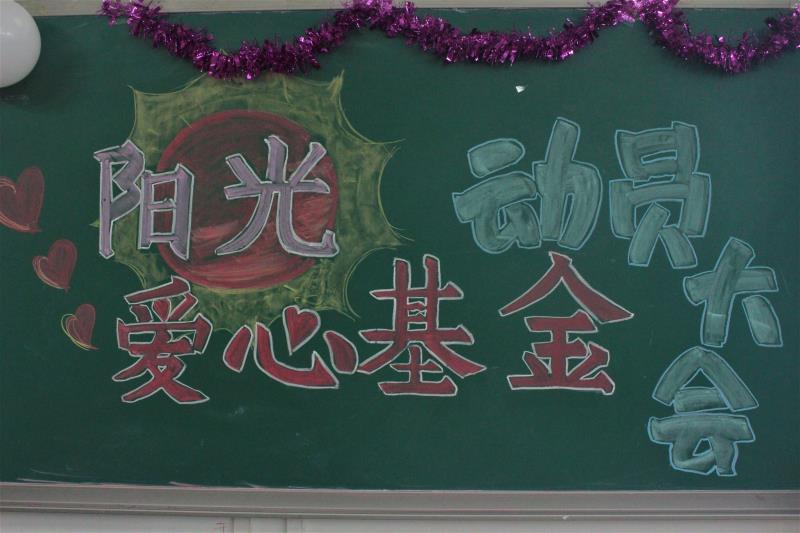 阳光
爱心基金
动员大会